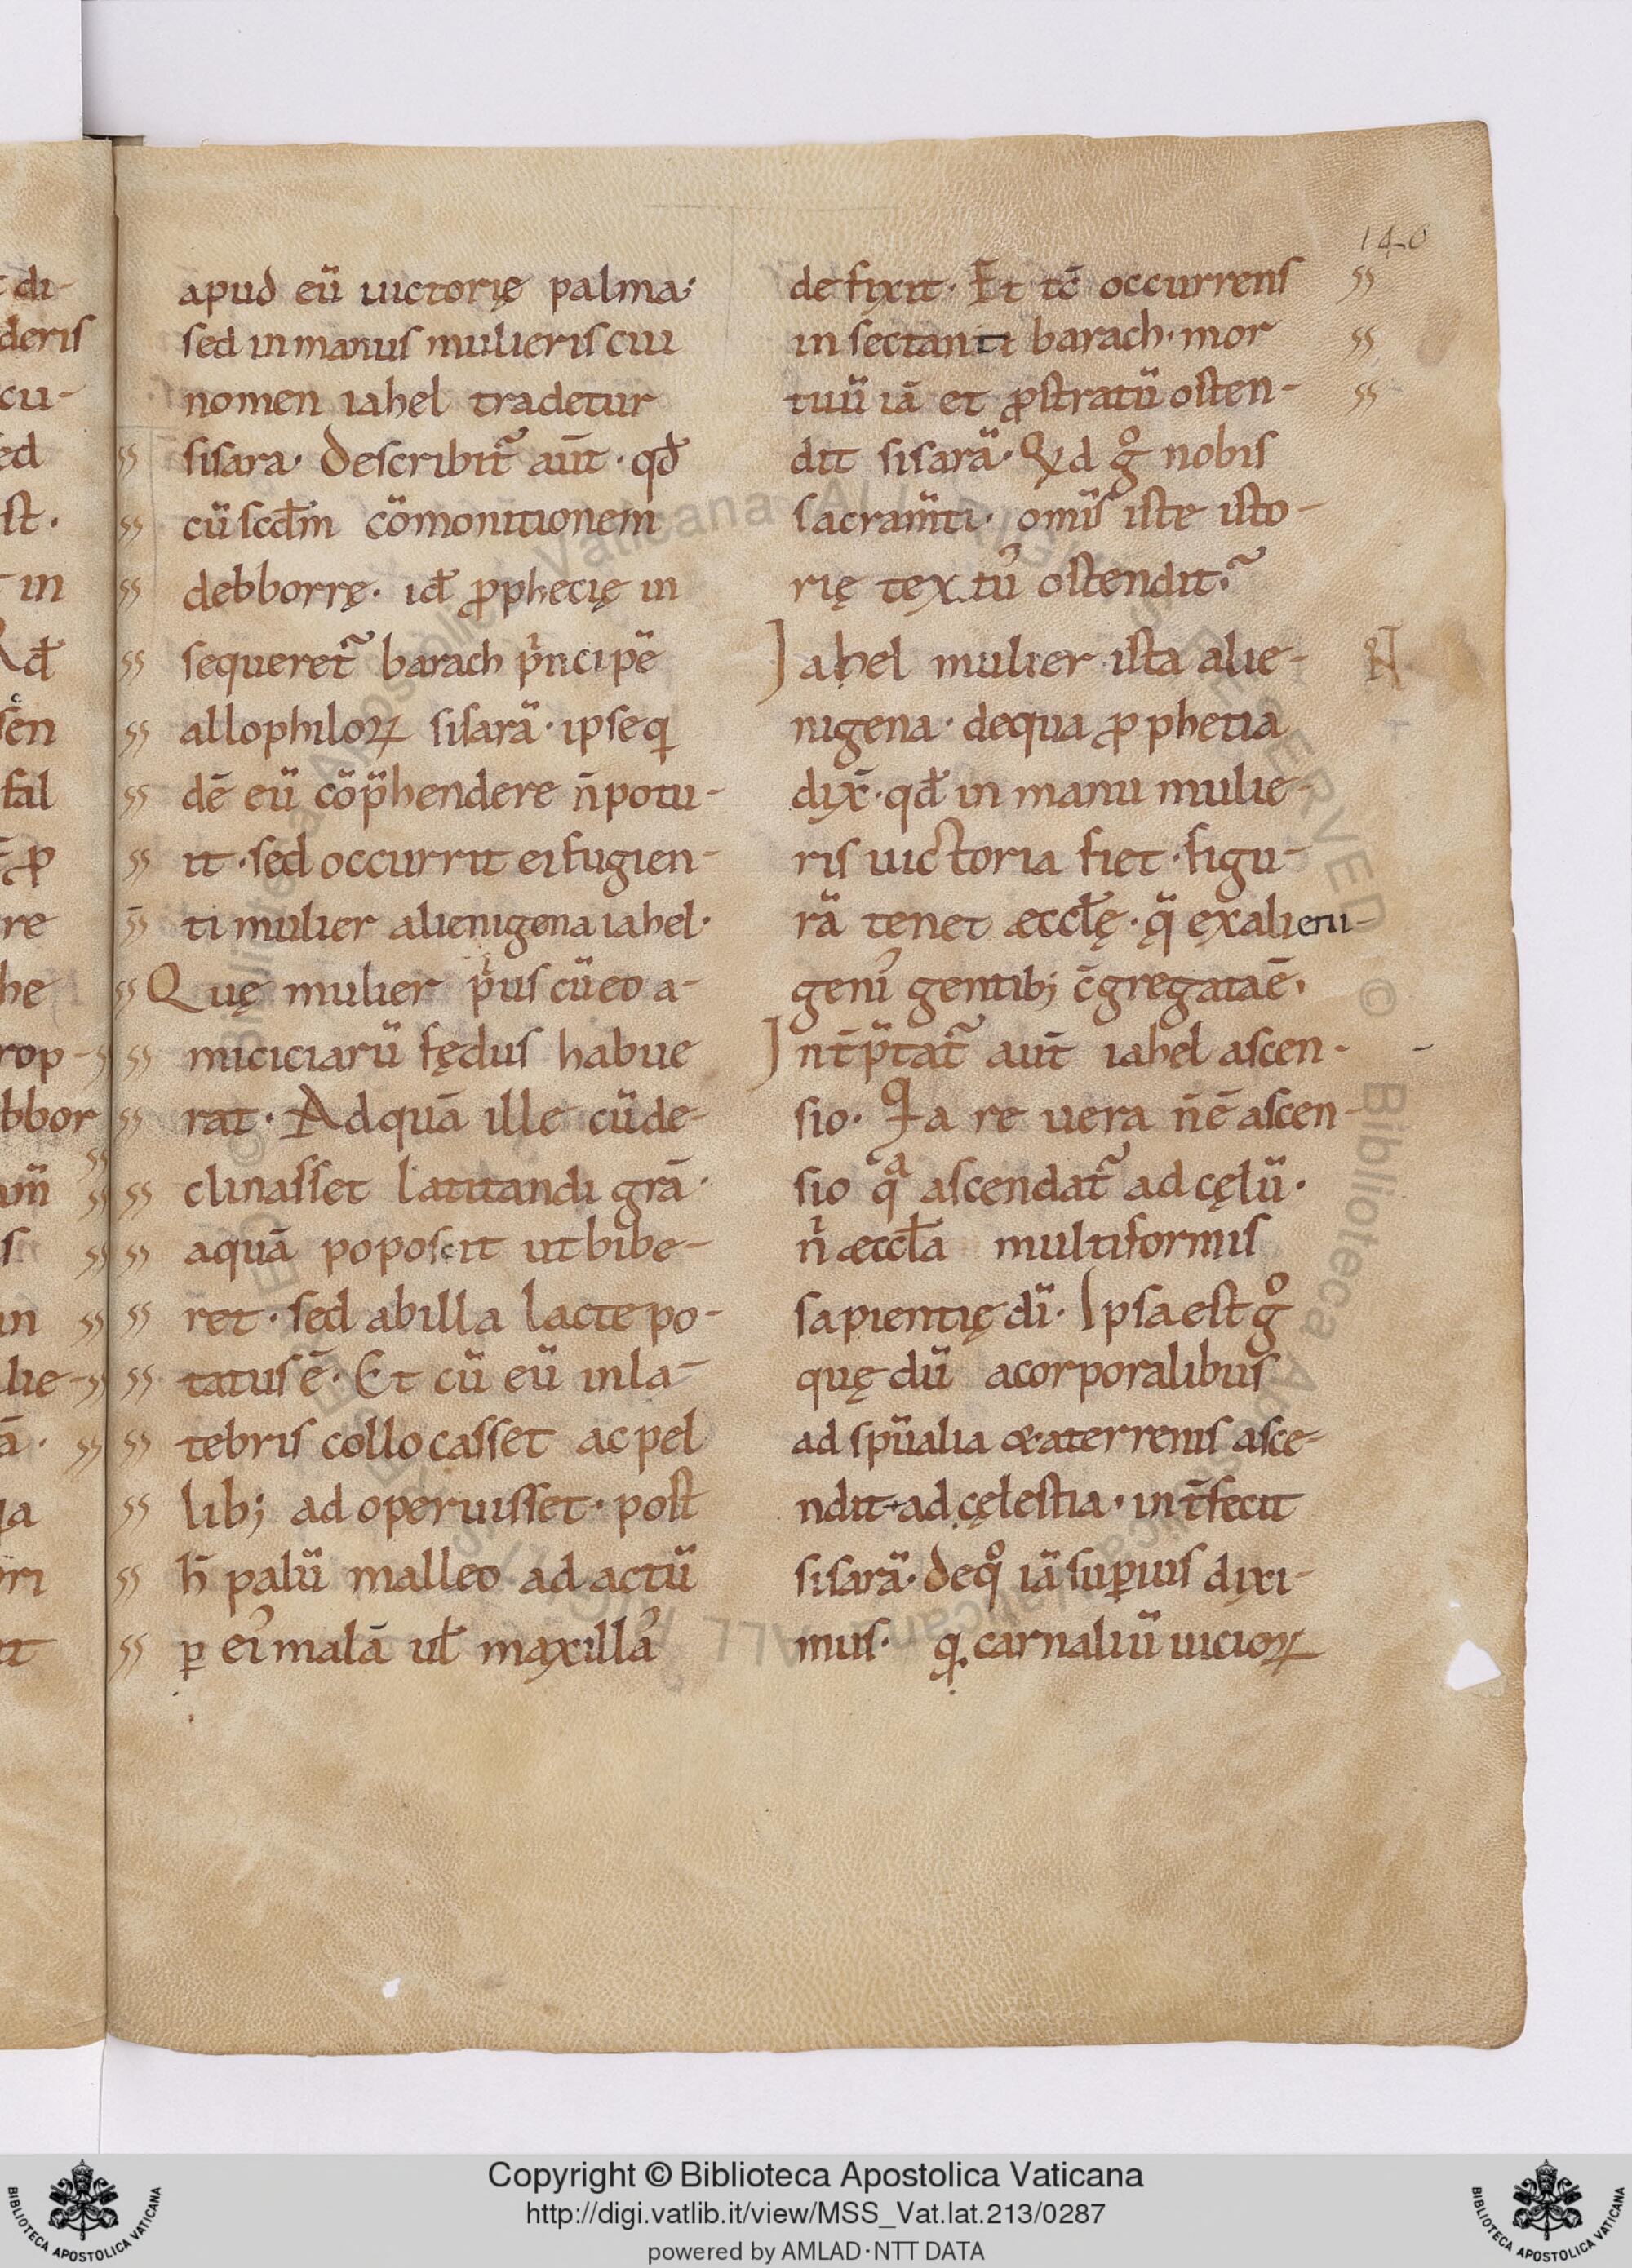 140
apud eū uictorię palma;
sed in manus mulieris cui
nomen iahel tradetur
sisara. Describit᷑ aūt. qđ
cū scđm cōmonitionem
debborrę. id̄ ꝓphecię in
sequeret᷑ barach pͥncipē
allophiloꝝ sisarā. ipse q
dē eū cōp̄hendere n̄ potu-
it. sed occurrit ei fugien-
ti mulier alienigena iahel.
Quę mulier pͥus cū eo a-
miciciarū fędus habue
rat. Ad quā ille cū de-
clinasset latitandi grā.
aquā poposcit ut bibe-
ret. sed ab illa lacte po-
tatus ē. Et cū eū in la-
tebris collocasset ac pel
lib; ad operuisset. post
h̄ palū malleo ad actū
ꝑ eiꝰ malā uł maxillaꝰ
de fixit. Et tc̄ occurrens
in sectanti barach. mor
tuū iā et ꝓstratū osten-
dit sisarā. Qd gͦ nobis
sacram̄ti. om̄is iste isto-
rię textuꝰ ostendit᷑.
Iahel mulier ista alie-
nigena. de qua ꝓphetia
dix̄. qđ in manu mulie-
ris uictoria fiet. figu-
rā tenet æccłę. q̄ ex alieni-
geniꝰ gentib; c̄gregata ē.
Int̄p̄tat᷑ aūt iahel ascen-
sio. Qa re uera n̄ ē ascen-
sio qͣ ascendat᷑ ad cęlū.
nͥ æccła multiformis
sapientię dī. Ipsa est gͦ
quę dū a corporalibus
ad spūalia & a terrenis asce-
ndit ad cęlestia. int̄fecit
sisarā. de qͦ iā suꝑius dixi-
mus. q carnaliū uicioꝝ
Copyright © Biblioteca Apostolica Vaticana
http://digi.vatlib.it/view/MSS_Vat.lat.213/0287
powered by AMLAD·NTT DATA